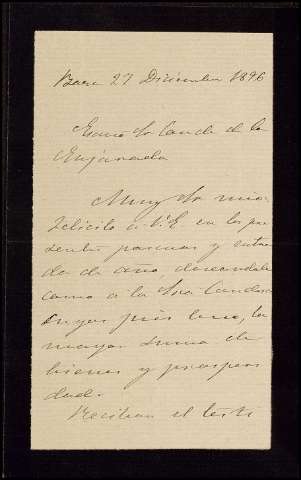 Baza 27 Diciembre 1896
Excmo Sr Conde de la
Enjarada
Muy Sr mio:
Felicito a V.E. en las pre
sentes pascuas y entra
da de año, deseandole
como a la Sra Condesa
cuyos piés beso, la
mayor suma de
bienes y prosperi
dad.
Reciban el testi